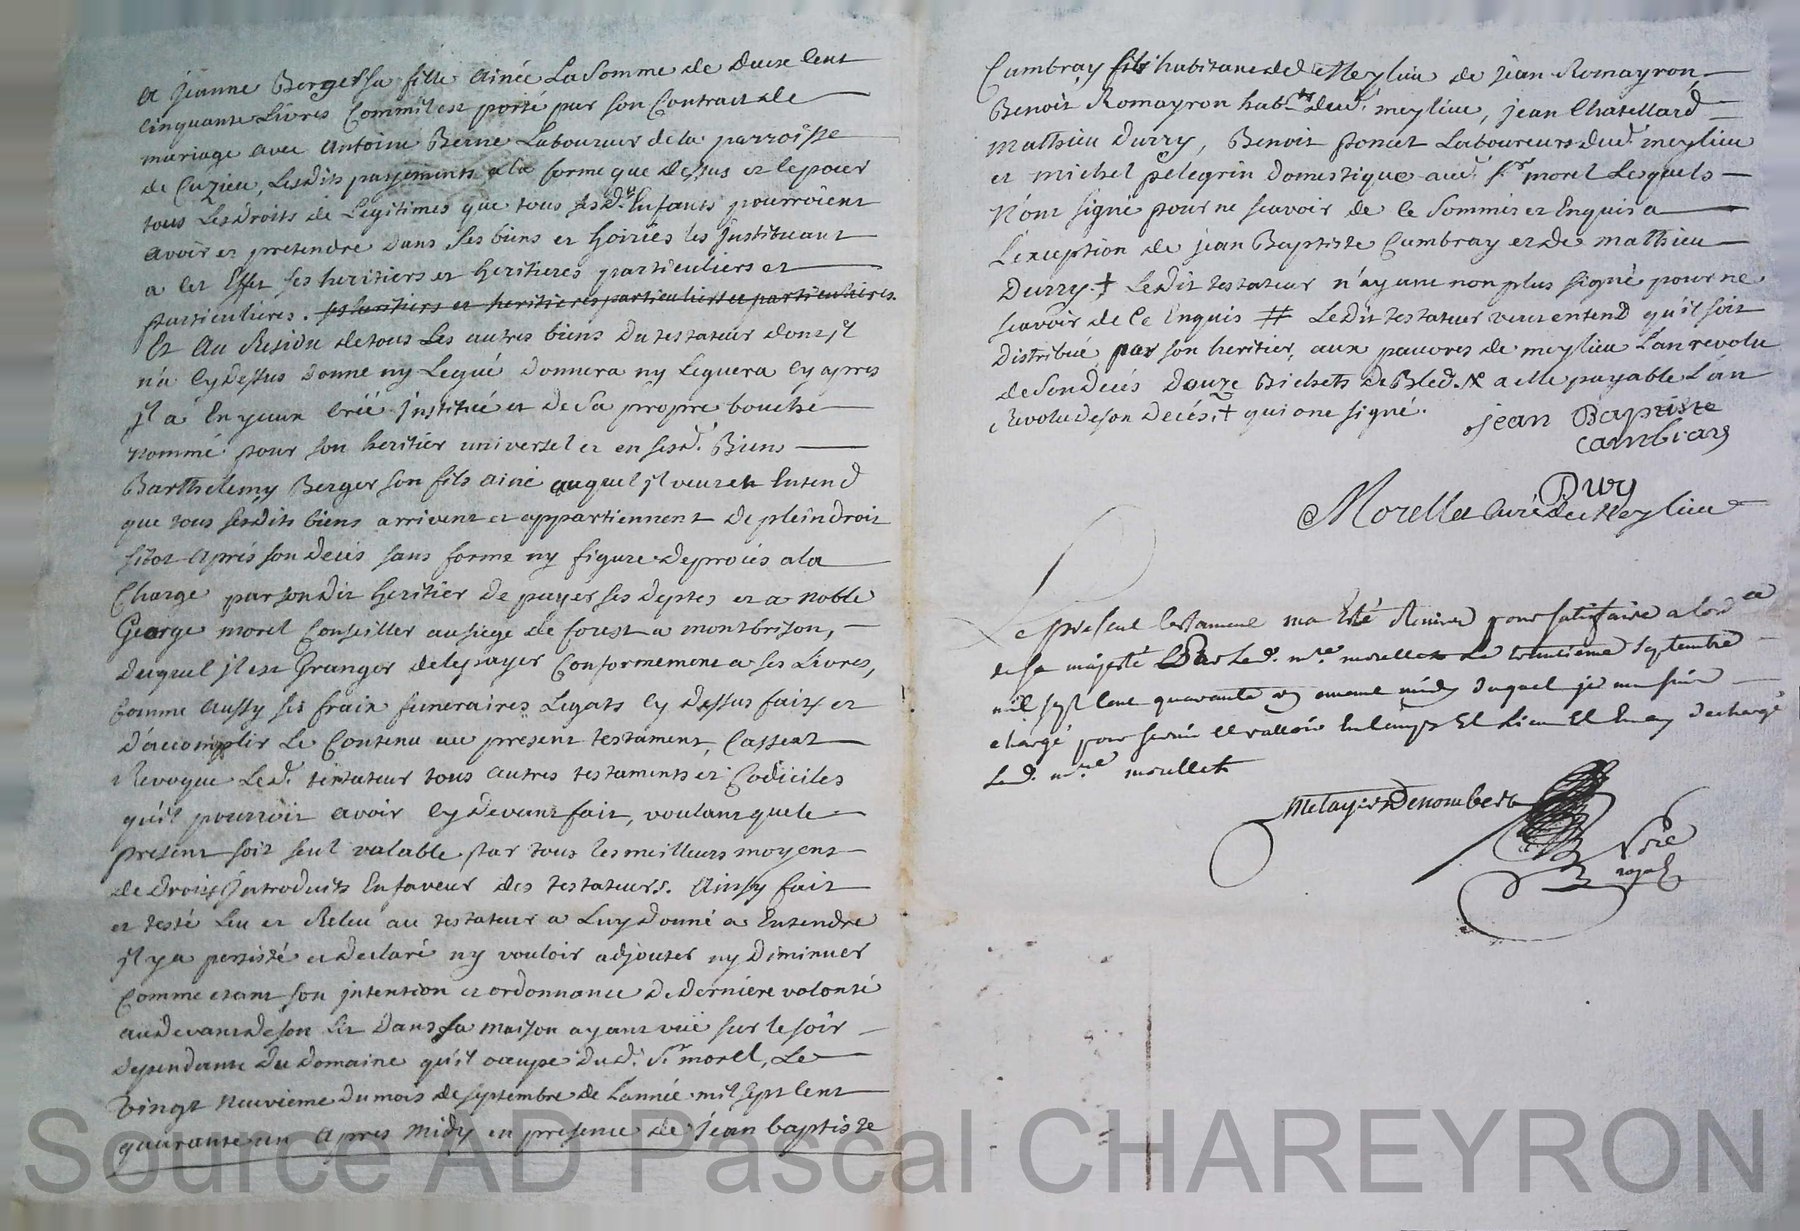 A jeanne Berger sa fille Ainée La Somme de deux Cent
Cinquante Livres Comm'il est porté par son Contract de
mariage avec Antoine Berne Laboureur de la parroisse
de Cuzieu, Lesdits payements a la forme que dessus et le pour
tous Les droits de Legitimes que tous sesd. Enfants pourroient
avoir et pretendre dans ses biens et hoiries les Jnstituant
a cet Effet ses heritiers et heritieres particuliers et
particulieres. ses heritiers et heritieres particuliers et particulieres.
Et Au Residu de tous Les autres biens du testateur dont jl
n'a Cy dessus donné ny Legué donnera ny Leguera Cy apres
jl a Enyeux Créé Jnstitué et de Sa propre bouche
nommé pour son heritier universel et en sesd. Biens
Barthelemy Berger son fils ainé auquel jl veut et Entend
que tous sesdits biens arrivent et appartiennent De plein droit
sitot Aprés son decés sans forme ny figure de procés a la
Charge par sondit heritier De payer ses deptes et a noble
George morel Conseiller au siege de forest a montbrison,
duquel jl est Granger de le payer Conformement a ses Livres,
Comme Aussy ses fraix funeraires Legats Cy dessus faits et
D'accomplir Le Contenu au present testament, Casse et
Revoque Led. testateur tous autres testaments et Codiciles
qu'il pourroit avoir Cy devant fait, voulant que le
present soit seul valable par tous les meilleurs moyens
de droits Jntroduits En faveur des testateurs. Ainsy fait
et testé Leu et Releu au testateur a Luy donné a Entendre
jl y a persisté et declaré ny vouloir adjouter ny diminuer
Comme etant son jntention et ordonnance De derniere volonté
au devant de son Lit dans sa maison ayant vüe sur le soir
dependante du domaine qu'il occupe dud. Sr. morel, Le
vingt neuvieme du mois de septembre de L'année mil sept Cent
quarante un Apres Midy en presence de jean baptiste
Cambray fils habitant de Meylieu de jean Romayron
Benoit Romayron habts. dud. meylieu, jean Chatellard
mathieu Durry, Benoit poncet Laboureurs dud. meylieu
et michel pelegrin Domestique aud. Sr. morel Lesquels
N'ont signé pour ne scavoir de Ce Sommis et Enquis a
L'exception de jean Baptiste Cambray et de mathieu
Durry.† Ledit testateur n'ayant non plus signé pour ne
scavoir de Ce Enquis # Ledit testateur veut entend qu'il soit
distribué par son heritier, aux pauvres de meylieu L'an revolu
de Son Decés Douze Bichets De Bled. a elle payable L'an
Revolu de son Decés, † qui ont signé.
jean Baptiste
Cambray
Dury
Morellet Curé de Meylieu
Le present testament ma Eté Remis pour satisfaire a lordce
de sa majesté Par Led. mre. morellet Le trentieme Septembre
mil sept Cent quarante un avant midy duquel je me suis
chargé pour servir et valloir En temps Et Lieu Et En ay dechargé
Led. mre. morellet
Metayer Denombert
Nre
royal
Source AD Pascal CHAREYRON